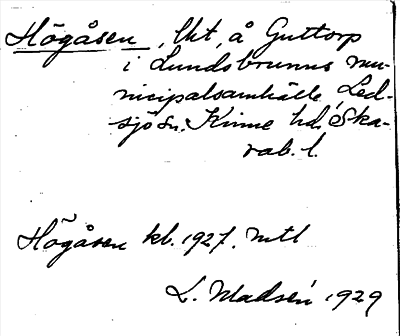 Högåsen, lht, å Guttorp
i Lundsbrunns mu-
nicipalsamhälle, Led-
sjö sn, Kinne hd, Ska-
rab. l.
Högåsen kb. 1927. mtl
L. Madsén 1929